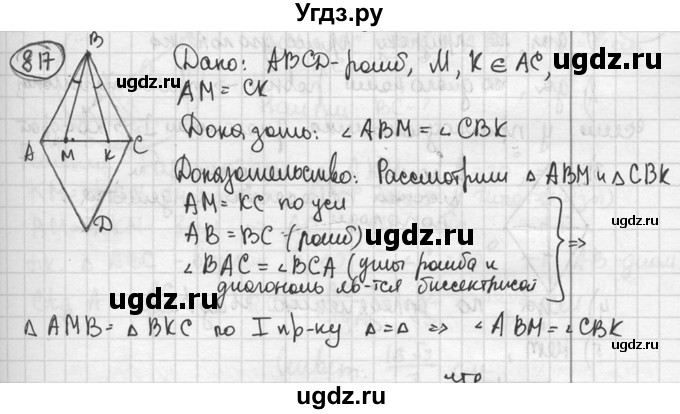 Угдз.ру
817
B
A M K C
D
Дано: ABCD-ромб, M, K ∈ AC,
AM = CK
Доказать: ∠ABM = ∠CBK
Доказательство: Рассмотрим △ABM и △CBK
AM = KC по усл
AB = BC - (ромб)
∠BAC = ∠BCA (углы ромба и
диагональ яв-тся биссектрисой
} =>
△AMB = △BKC по I пр-ку △=△ => ∠ABM = ∠CBK
чтд
ugdz.ru
ugdz.ru
ugdz.ru
ugdz.ru
ugdz.ru
ugdz.ru
ugdz.ru
ugdz.ru
ugdz.ru
ugdz.ru